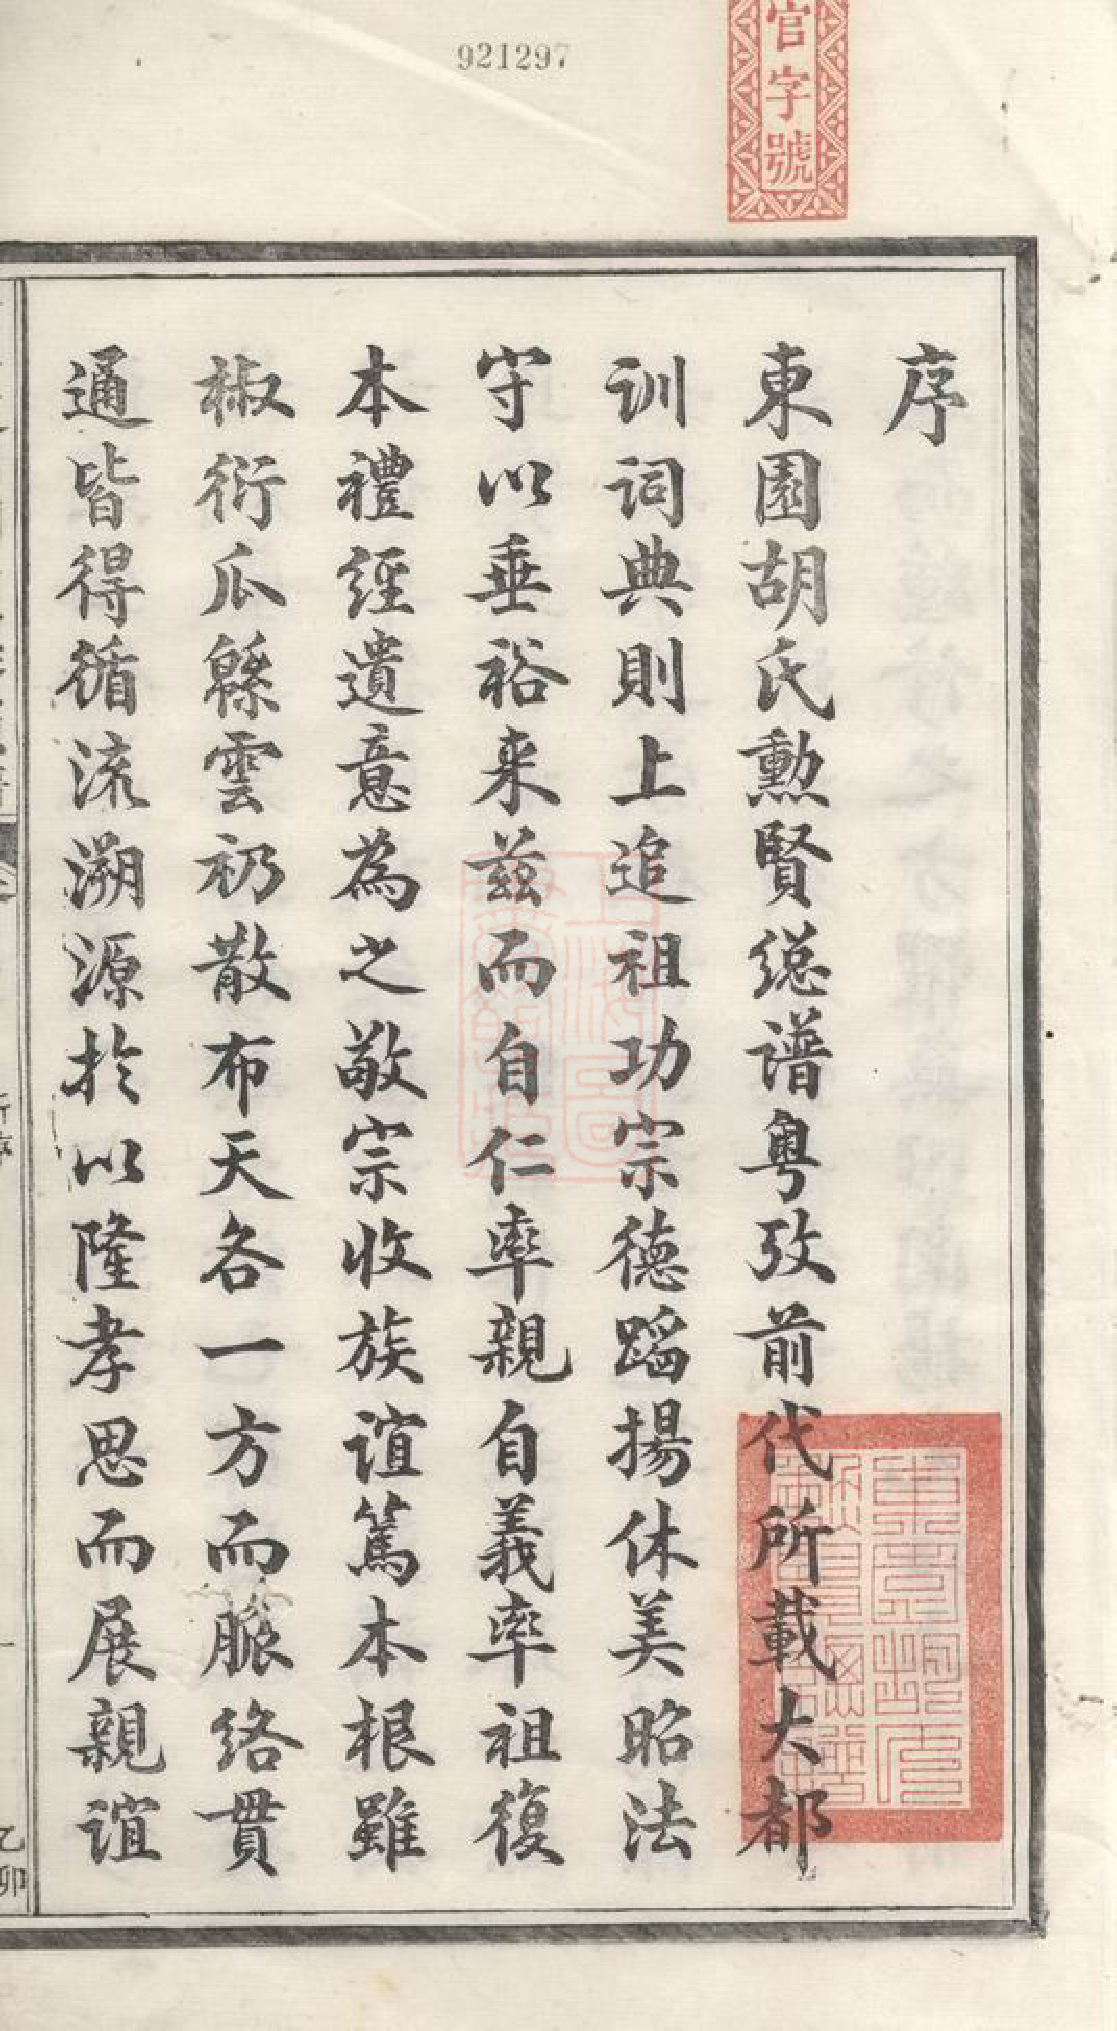 921297
官字號
序
東園胡氏勲賢緫谱粤攷前代所載大都
训词典則上追祖功宗德蹈揚休美昭法
守以垂裕来兹而自仁率親自義率祖復
本禮經遺意為之敬宗收族谊篤本根雖
椒衍瓜緜雲礽散布天各一方而脈络貫
通皆得循流溯源扵以隆孝思而展親谊
乙卯